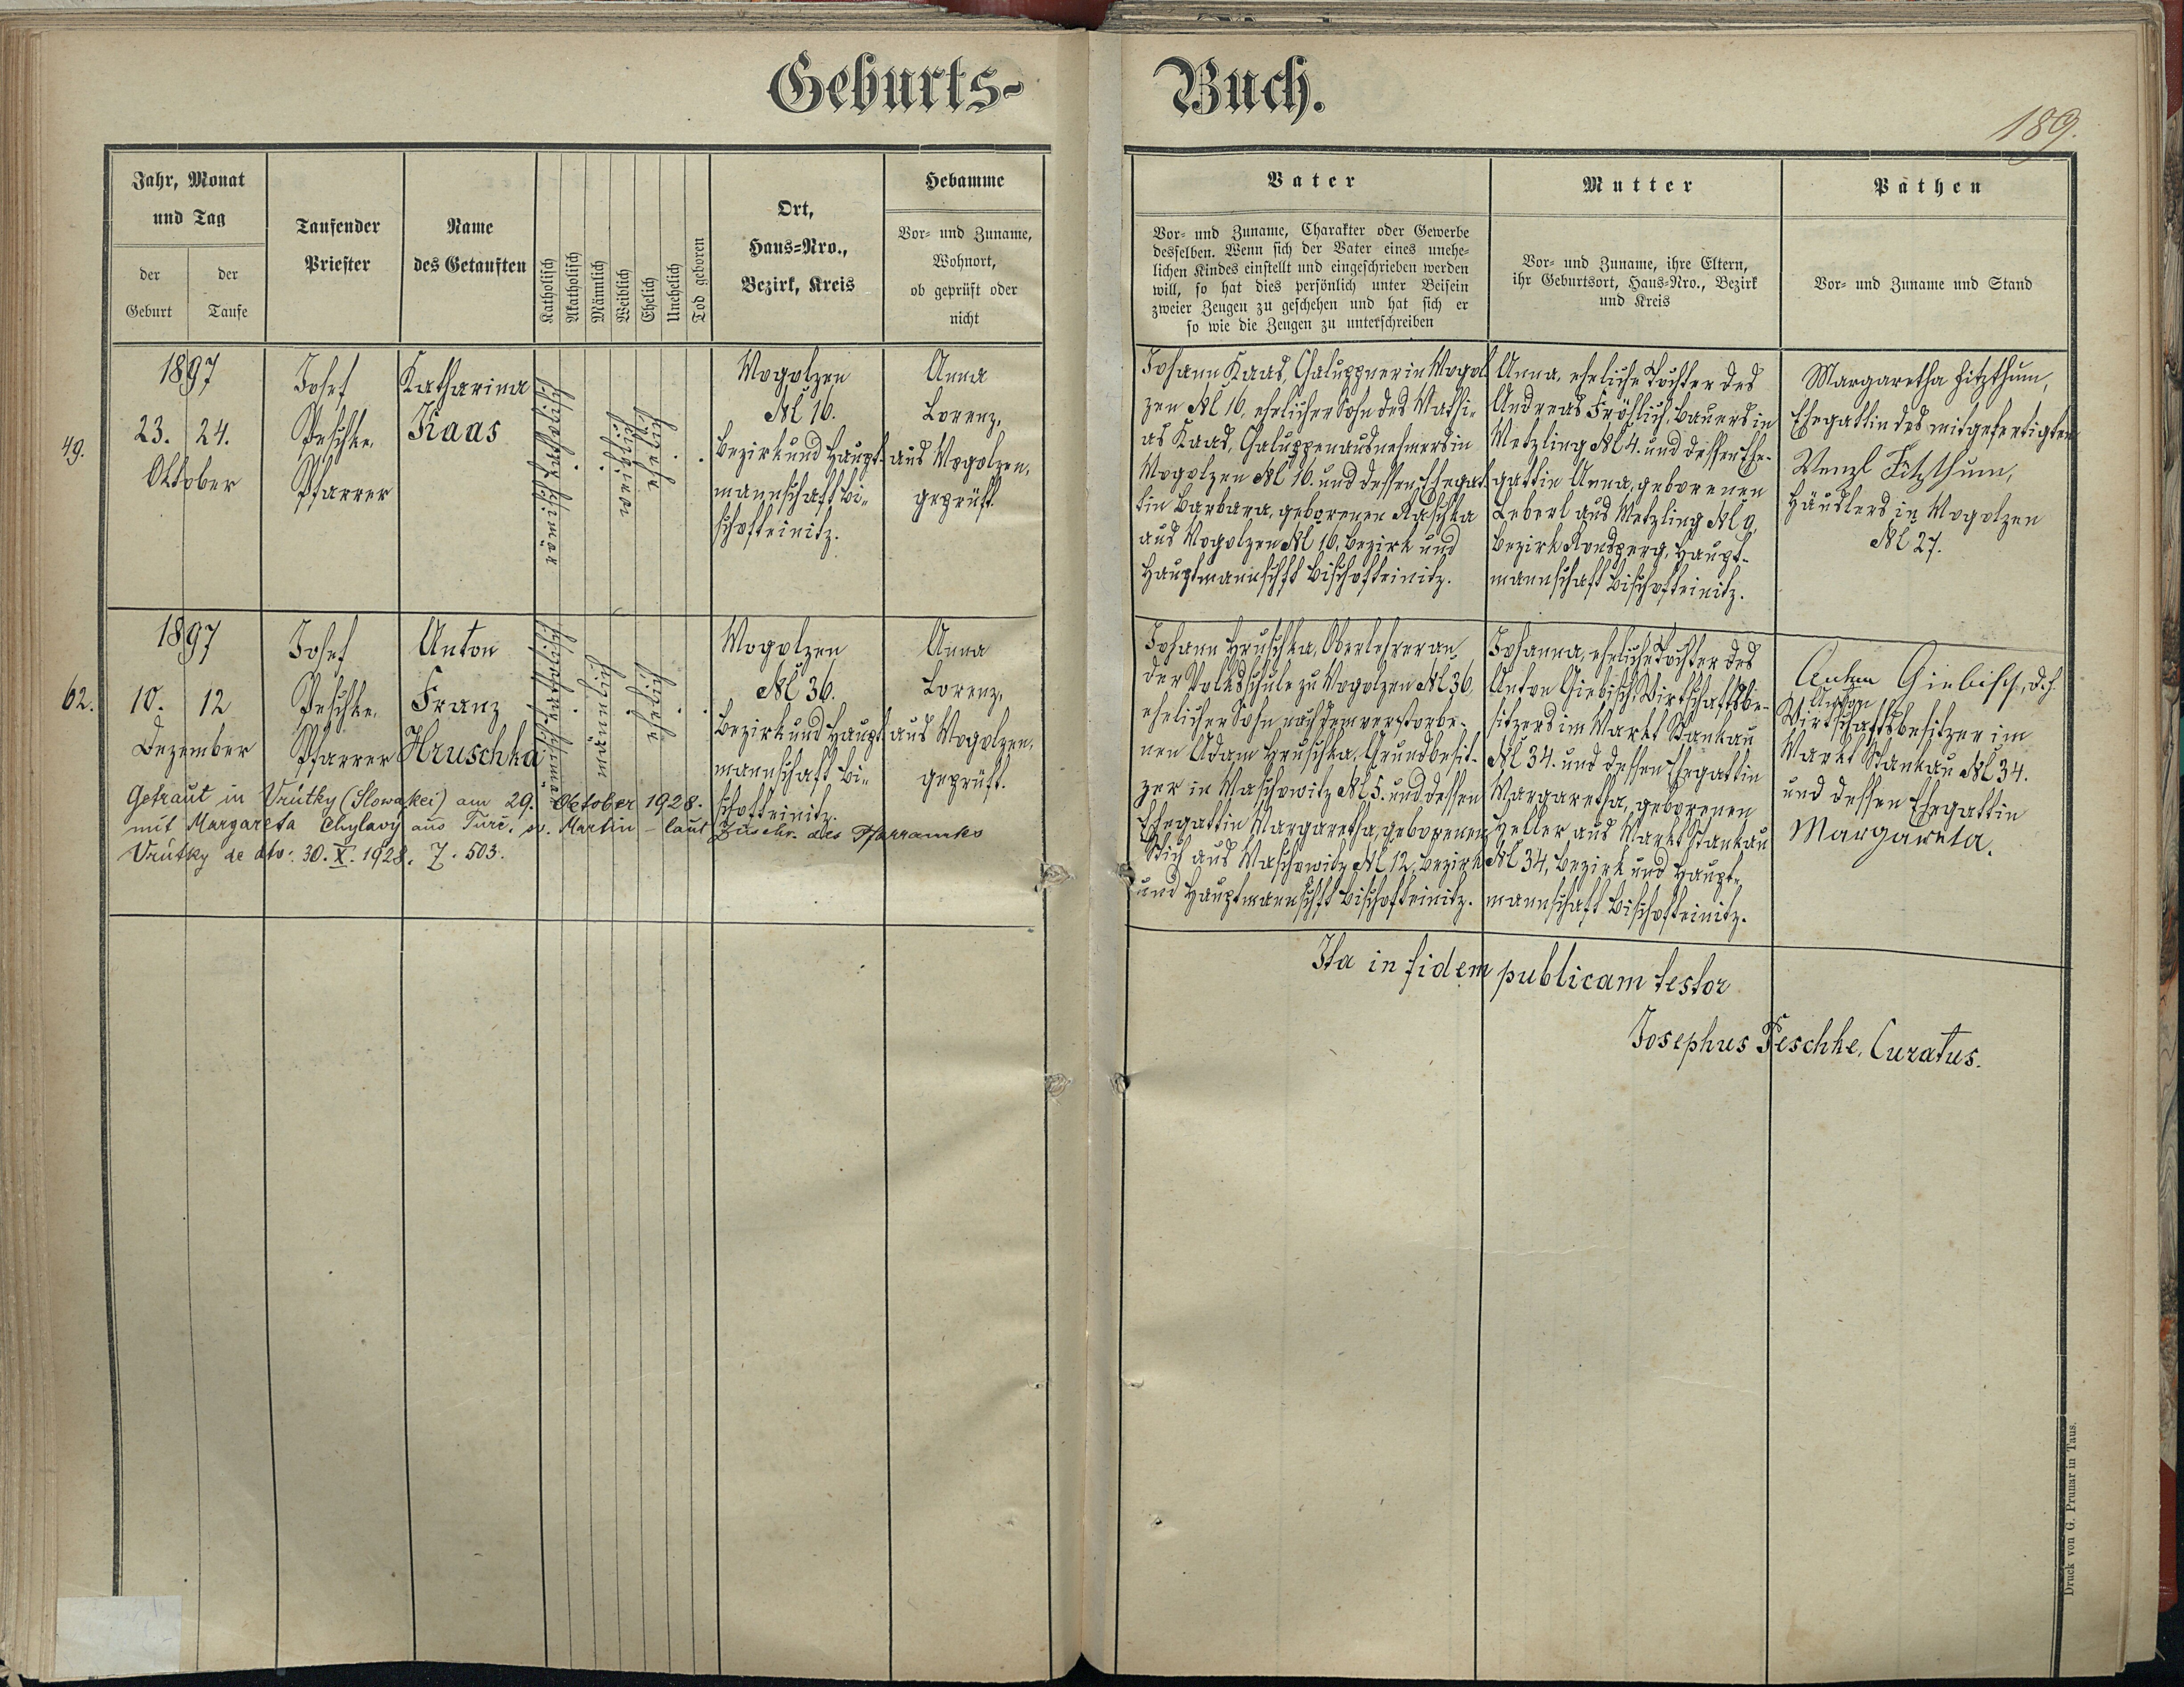 Geburts-
Buch.
189.
Jahr, Monat
und Tag
der
Geburt
der
Taufe
Taufender
Priester
Name
des Getauften
Katholisch
Akatholisch
Männlich
Weiblich
Ehelich
Unehelich
Tod geboren
Ort,
Haus-Nro.,
Bezirk, Kreis
Hebamme
Vor- und Zuname,
Wohnort,
ob geprüft oder
nicht
Vater
Vor- und Zuname, Charakter oder Gewerbe
desselben. Wenn sich der Vater eines unehe-
lichen Kindes einstellt und eingeschrieben werden
will, so hat dies persönlich unter Beisein
zweier Zeugen zu geschehen und hat sich er
so wie die Zeugen zu unterschreiben
Mutter
Vor- und Zuname, ihre Eltern,
ihr Geburtsort, Haus-Nro., Bezirk
und Kreis
Päthen
Vor- und Zuname und Stand
49.
1897
23. 24.
Oktober
Josef
Peschke,
Pfarrer
Katharina
Kaas
römisch katholisch
weiblich
ehelich
Mogolzen
№ 16.
Bezirk und Haupt-
mannschaft Bi-
schofteinitz.
Anna
Lorenz,
aus Mogolzen,
geprüft.
Johann Kaas, Chaluppner in Mogol
zen № 16, ehelicher Sohn des Mathi-
as Kaas, Chaluppenausnehmers in
Mogolzen № 16. und dessen Ehegat
tin Barbara, geborenen Raschka
aus Mogolzen № 16, Bezirk und
Hauptmannschft Bischofteinitz.
Anna, eheliche Tochter des
Andreas Fröhlich, Bauers in
Metzling № 4. und dessen Ehe-
gattin Anna, geborenen
Leberl aus Metzling № 9,
Bezirk Ronsperg, Haupt-
mannschaft Bischofteinitz.
Margaretha Fitzthum,
Ehegattin des mitgefertigten
Wenzl Fitzthum,
Häuslers in Mogolzen
№ 27.
62.
1897
10. 12
Dezember
Josef
Peschke,
Pfarrer
Anton
Franz
Hruschka
römisch katholisch
männlich
ehelich
Mogolzen
№ 36.
Bezirk und Haupt
mannschaft Bi-
schofteinitz.
Anna
Lorenz,
aus Mogolzen,
geprüft.
Johann Hruschka, Oberlehrer an
der Volksschule zu Mogolzen № 36,
ehelicher Sohn nach dem verstorbe-
nen Adam Hruschka, Grundbesit-
zer in Waschowitz № 5. und dessen
Ehegattin Margaretha, geborenen
Stich aus Waschowitz № 12, Bezirk
und Hauptmannschft Bischofteinitz.
Johanna, eheliche Tochter des
Anton Giebisch, Wirtschaftsbe-
sitzers im Markt Stankau
№ 34. und dessen Ehegattin
Margaretha, geborenen
Zeller aus Markt Stankau
№ 34, Bezirk und Haupt-
mannschaft Bischofteinitz.
Anton Giebisch, d. h.
Anton
Wirtschaftsbesitzer im
Markt Stankau № 34.
und dessen Ehegattin
Margareta.
Getraut in Vrútky (Slowakei) am 29. Oktober 1928.
mit Margareta Chylavý aus Turč. sv. Martin - laut Zuschr. des Pfarramtes
Vrútky de dto: 30. X. 1928. Z. 503.
Ita in fidem publicam testor
Josephus Peschke, Curatus.
Druck von G. Prunar in Taus.